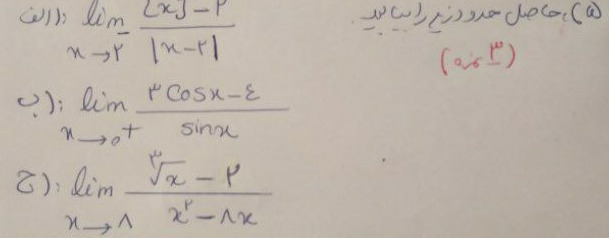 ۵) حاصل حدود زیر را بیابید.
(۳ نمره)
الف): lim x→۲⁻ [x]-۲ / |x-۲|
ب): lim x→۰⁺ ۳cosx-٤ / sinx
ج): lim x→۸ ∛x - ۲ / x²-۸x